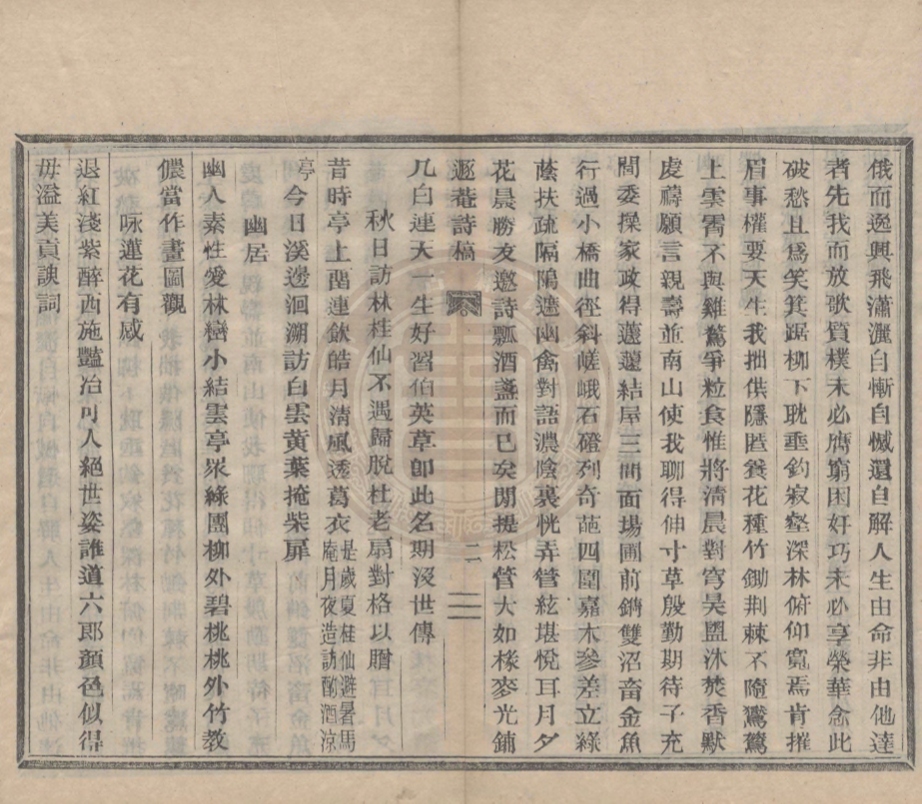 俄而逸興飛瀟灑自慚自憾還自解人生由命非由他達
者先我而放歌質樸未必膺窮困奸巧未必享榮華念此
破愁且爲笑箕踞柳下耽垂釣寂壑深林俯仰寬焉肯摧
眉事權要天生我拙供隱匿養花種竹鋤荆棘不隨鸞鶱
上雲霄不與雞鶩爭粒食惟將清晨對穹昊盟沐焚香默
處禱願言親壽並南山使我聊得伸寸草殷勤期待子充
閭委操家政得蘧蘧結屋三間面場圃前鎖雙沼畜金魚
行過小橋曲徑斜嵯峨石磴列奇葩四圍嘉木參差立綠
蔭扶疏隔隖遮幽禽對語濃陰裏恍弄管絃堪悅耳月夕
花晨勝友邀詩瓢酒盞而已矣閒提松管大如椽麥光鋪
遯菴詩稿 二
几白連天一生好習伯英草卽此名期沒世傳
秋日訪林桂仙不遇歸脫杜老扇對格以贈
昔時亭上酌連飲皓月清風透葛衣是歲夏桂仙避暑馬庵月夜造訪酌酒涼
亭今日溪邊洄溯訪白雲黃葉掩柴扉
幽居
幽人素性愛林巒小結雲亭衆綠團柳外碧桃桃外竹教
儂當作畫圖觀
咏蓮花有感
退紅淺紫醉西施豔冶可人絕世姿誰道六郎顏色似得
毋溢美貢諛詞